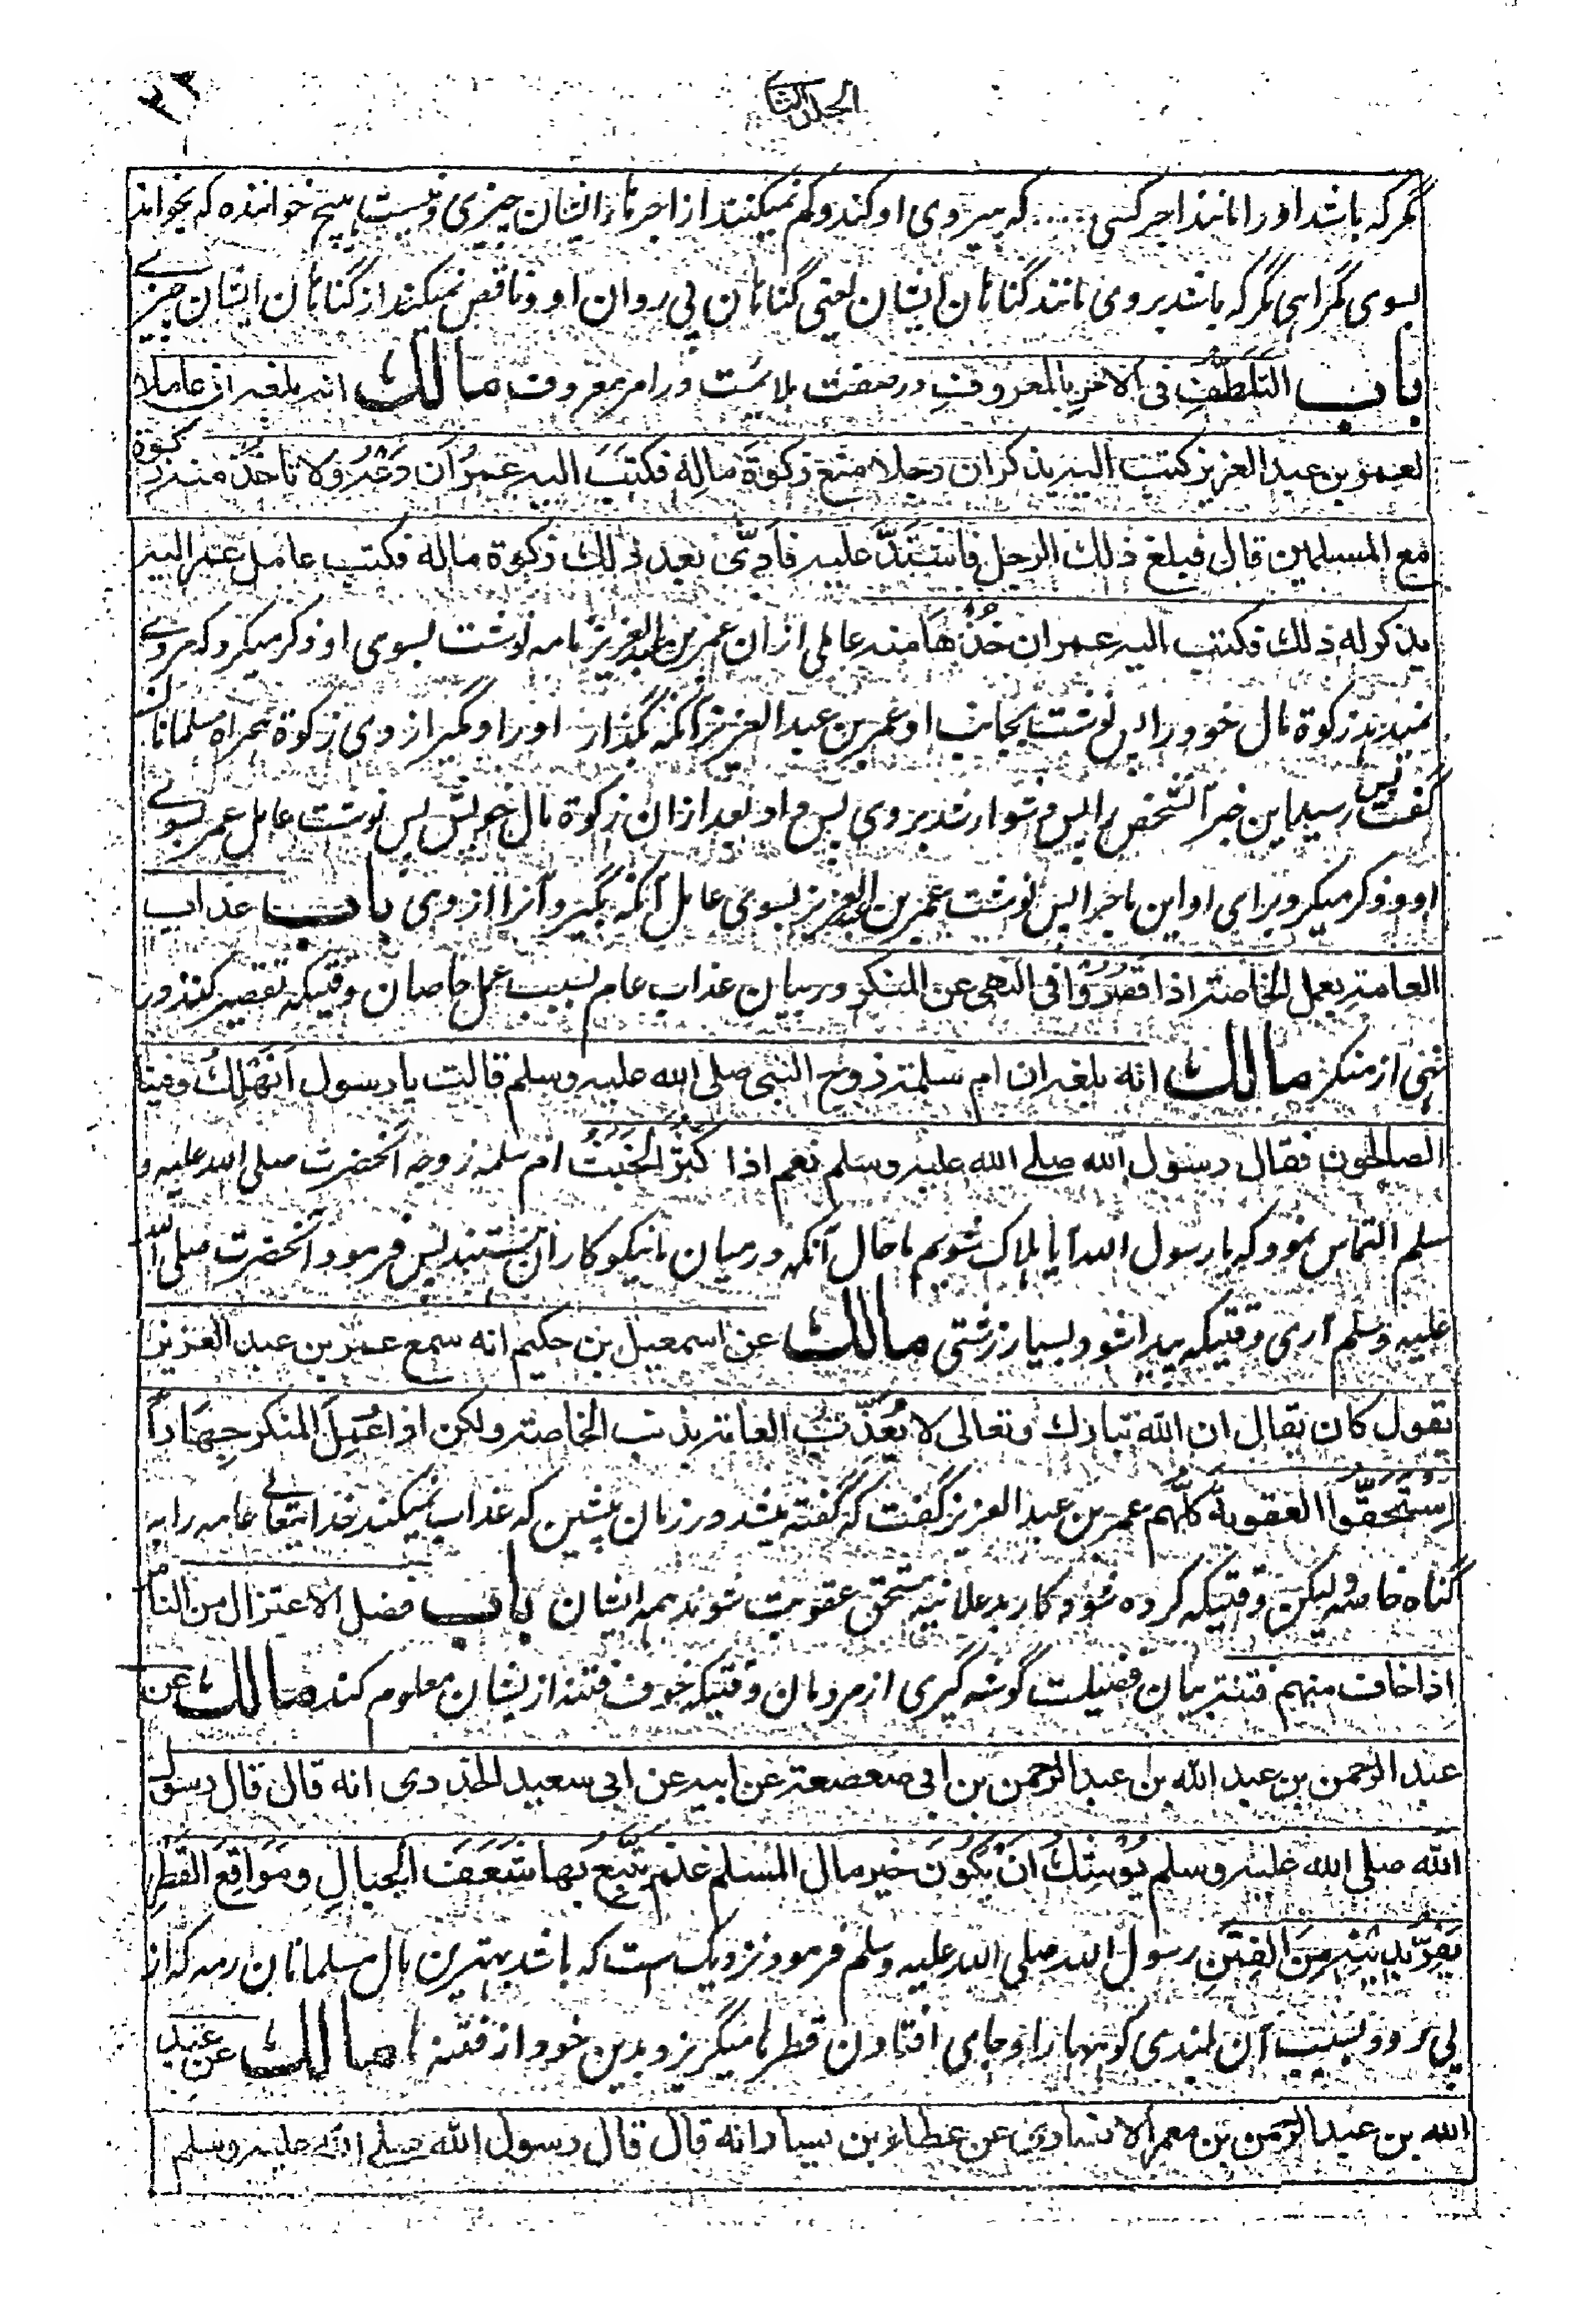 الجلد الثانی
مگر که باشد او را مانند اجر کسی که پیروی او کند و کم نمیکنند از اجرهای ایشان چیزی و نیست هیچ خواننده که بخواند
بسوی گمراهی مگر که باشد بروی مانند گناهان ایشان یعنی گناهان پی روان او و ناقص نمیکند از گناهان ایشان چیزے
باب التلطف فی الامر بالمعروف در صفت ملائمت در امر بمعروف مالك انه بلغه ان عاملا
لعمر بن عبد العزیز کتب الیه یذکر ان رجلا منع زکوة ماله فکتب الیه عمر ان دعه ولا تاخذ منه زکوة
مع المسلمین قال فبلغ ذلك الرجل فاشتد علیه فادی بعد ذلك زکوة ماله فکتب عامل عمر الیه
یذکر له ذلك فکتب الیه عمر ان خذها منه عاملی از آن عمر بن عبد العزیز نامه نوشت بسوی او ذکر میکرد که مردے
نمیدهد زکوة مال خود را پس نوشت بجانب او عمر بن عبد العزیز آنکه بگذار او را و مگیر از وی زکوة همراه مسلمانان
گفت پس رسید این خبر آنشخص را پس دشوار شد بروی پس داد بعد ازان زکوة مال خویش پس نوشت عامل عمر بسوے
او و ذکر میکرد برای او این ماجرا پس نوشت عمر بن عبد العزیز بسوی عامل آنکه بگیر و آنرا از وی باب عذاب
العامة بعمل الخاصة اذا قصروا فی النهی عن المنکر در بیان عذاب عام بسبب عمل خاصان وقتیکه تقصیر کنند در
نهی از منکر مالك انه بلغه ان ام سلمة زوج النبی صلی الله علیه وسلم قالت یا رسول انهلك وفینا
الصالحون فقال رسول الله صلے الله علیه وسلم نعم اذا کثر الخبث ام سلمه زوجه آنحضرت صلی الله علیه و
سلم التماس نمود که یا رسول الله آیا هلاک شویم ما حال آنکه در میان ما نیکوکاران هستند پس فرمود آنحضرت صلی الله
علیه وسلم آری وقتیکه پیدا شود بسیار زشتی مالك عن اسمعیل بن حکیم انه سمع عمر بن عبد العزیز
یقول کان یقال ان الله تبارك وتعالی لا یعذب العامة بذنب الخاصة ولکن اذا عمل المنکر جهاراً
استحقوا العقوبة کلهم عمر بن عبد العزیز گفت که گفته میشد در زمان پیشین که عذاب نمیکند خدا تعالے عامه را به
گناه خاصه و لیکن وقتیکه کرده شود کار بد علانیه مستحق عقوبت شوند همه ایشان باب فضل الاعتزال من الناس
اذا خاف منهم فتنة بیان فضیلت گوشه گیری از مردمان وقتیکه خوف فتنه از ایشان معلوم کند مالك عن
عبد الرحمن بن عبد الله بن عبد الرحمن بن ابی صعصعة عن ابیه عن ابی سعید الخدری انه قال قال رسول
الله صلی الله علیه وسلم یوشك ان یکون خیر مال المسلم غنم یتبع بها شعف الجبال ومواقع القطر
یفر بدینه من الفتن رسول الله صلی الله علیه وسلم فرمود نزدیک است که باشد بهترین مال مسلمانان رمه که از
پی برود بسبب آن بلندی کوهها را و جای افتادن قطرها میگریزد بدین خود از فتنه ها مالك عن عبد
الله بن عبد الرحمن بن معمر الانصاری عن عطاء بن یسار انه قال قال رسول الله صلے الله علیه وسلم